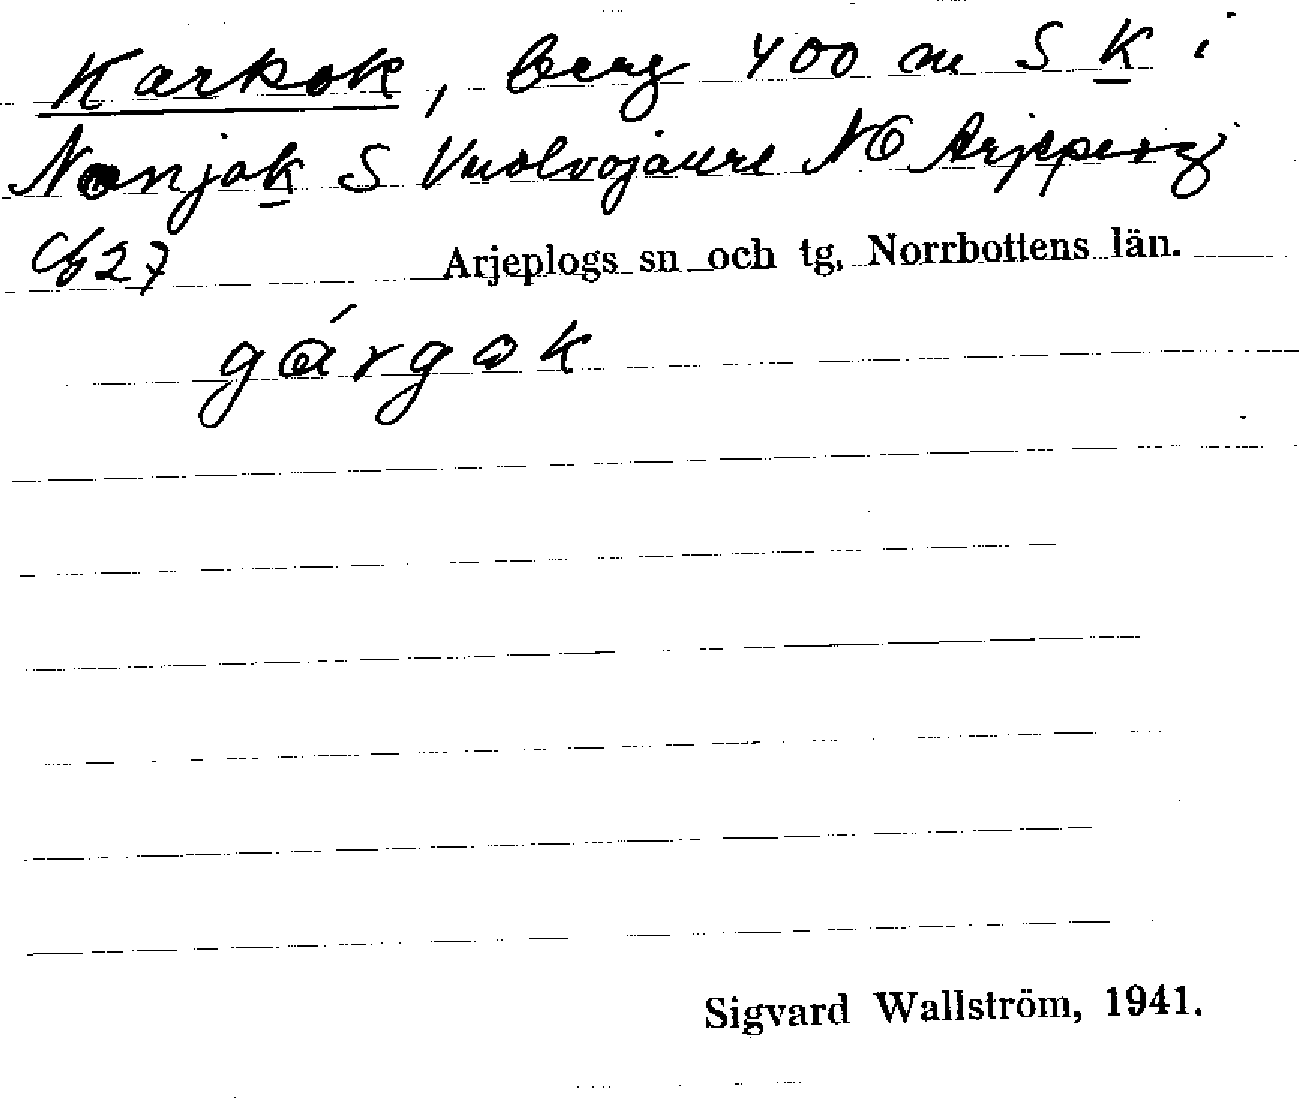 Karkok, berg 400 m S K i
Nonjak S Vuolvojaure NO Arjeplog
Cb27 Arjeplogs sn och tg, Norrbottens län.
gárgok
Sigvard Wallström, 1941.